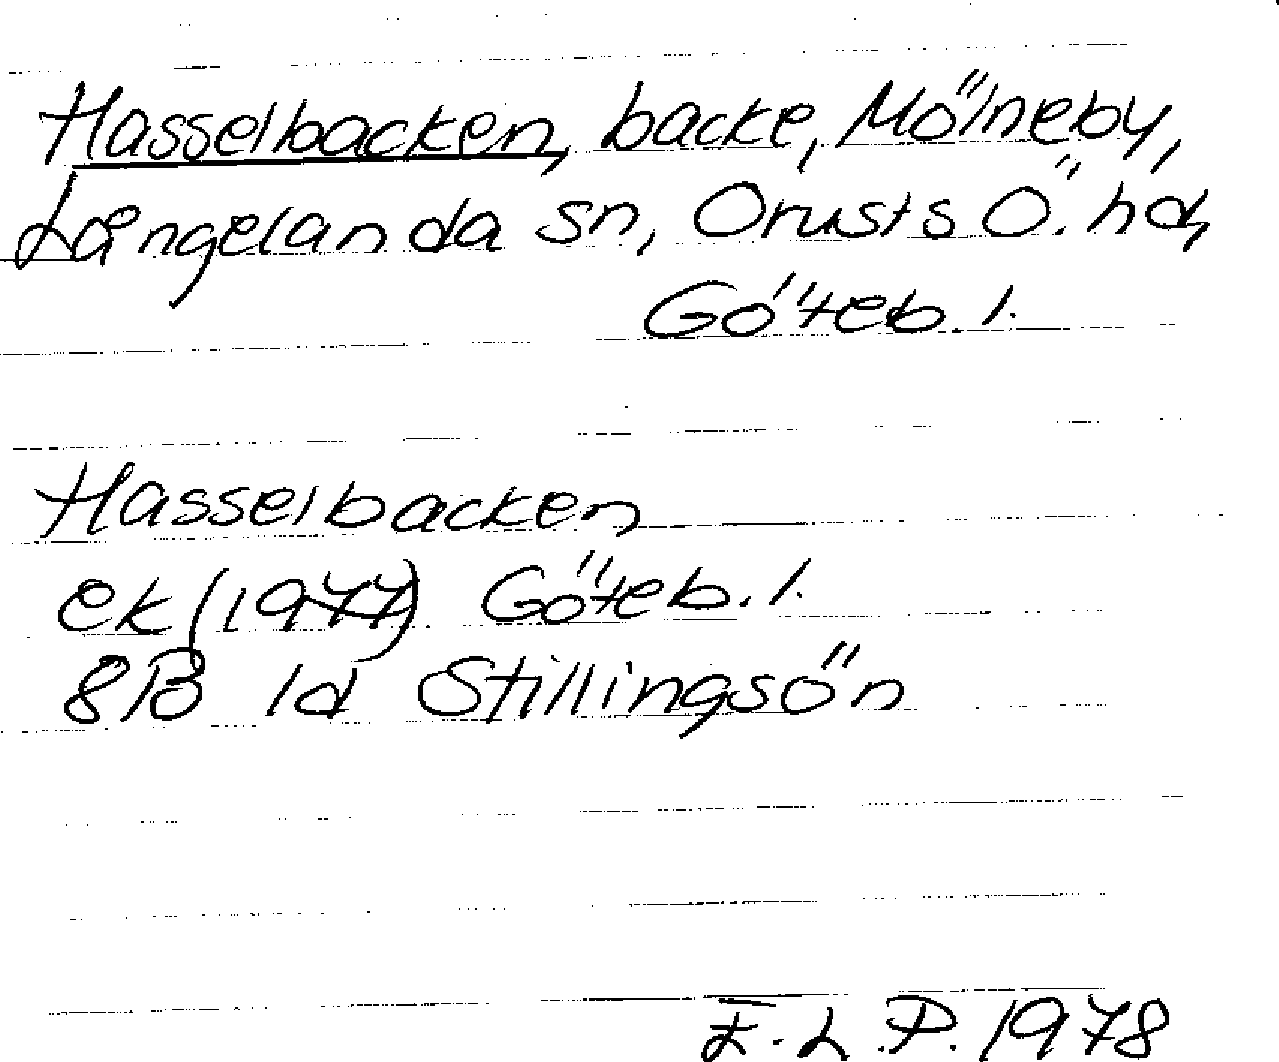 Hasselbacken, backe, Mölneby,
Långelanda sn, Orusts Ö. hd,
Göteb. l.
Hasselbacken
ek (1977) Göteb. l.
8B 1d Stillingsön
F. L. P. 1978